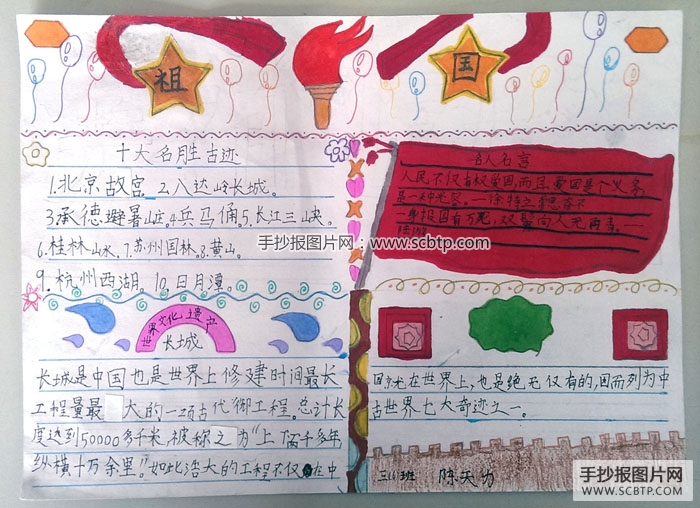 祖
国
十大名胜古迹
1.北京故宫 2.八达岭长城。
3承德避暑山庄.4兵马俑.5.长江三峡。
6.桂林山水.7.苏州园林.8.黄山。
9.杭州西湖。10.日月潭。
名人名言
人民不仅有权爱国,而且爱国是个义务,
是一种光荣。——徐特立
一身报国有万死,双鬓向人无再青。——
陆游
手抄报图片网:www.scbtp.com
世界文化遗产
长城
长城是中国也是世界上修建时间最长
工程量最大的一项古代御工程。总计长
度达到50000多千米,被称之为“上下两千多年
纵横十万余里!”如此浩大的工程不仅在中
国就是在世界上,也是绝无仅有的,因而列为中
古世界七大奇迹之一。
三(6)班
手抄报图片网
WWW.SCBTP.COM